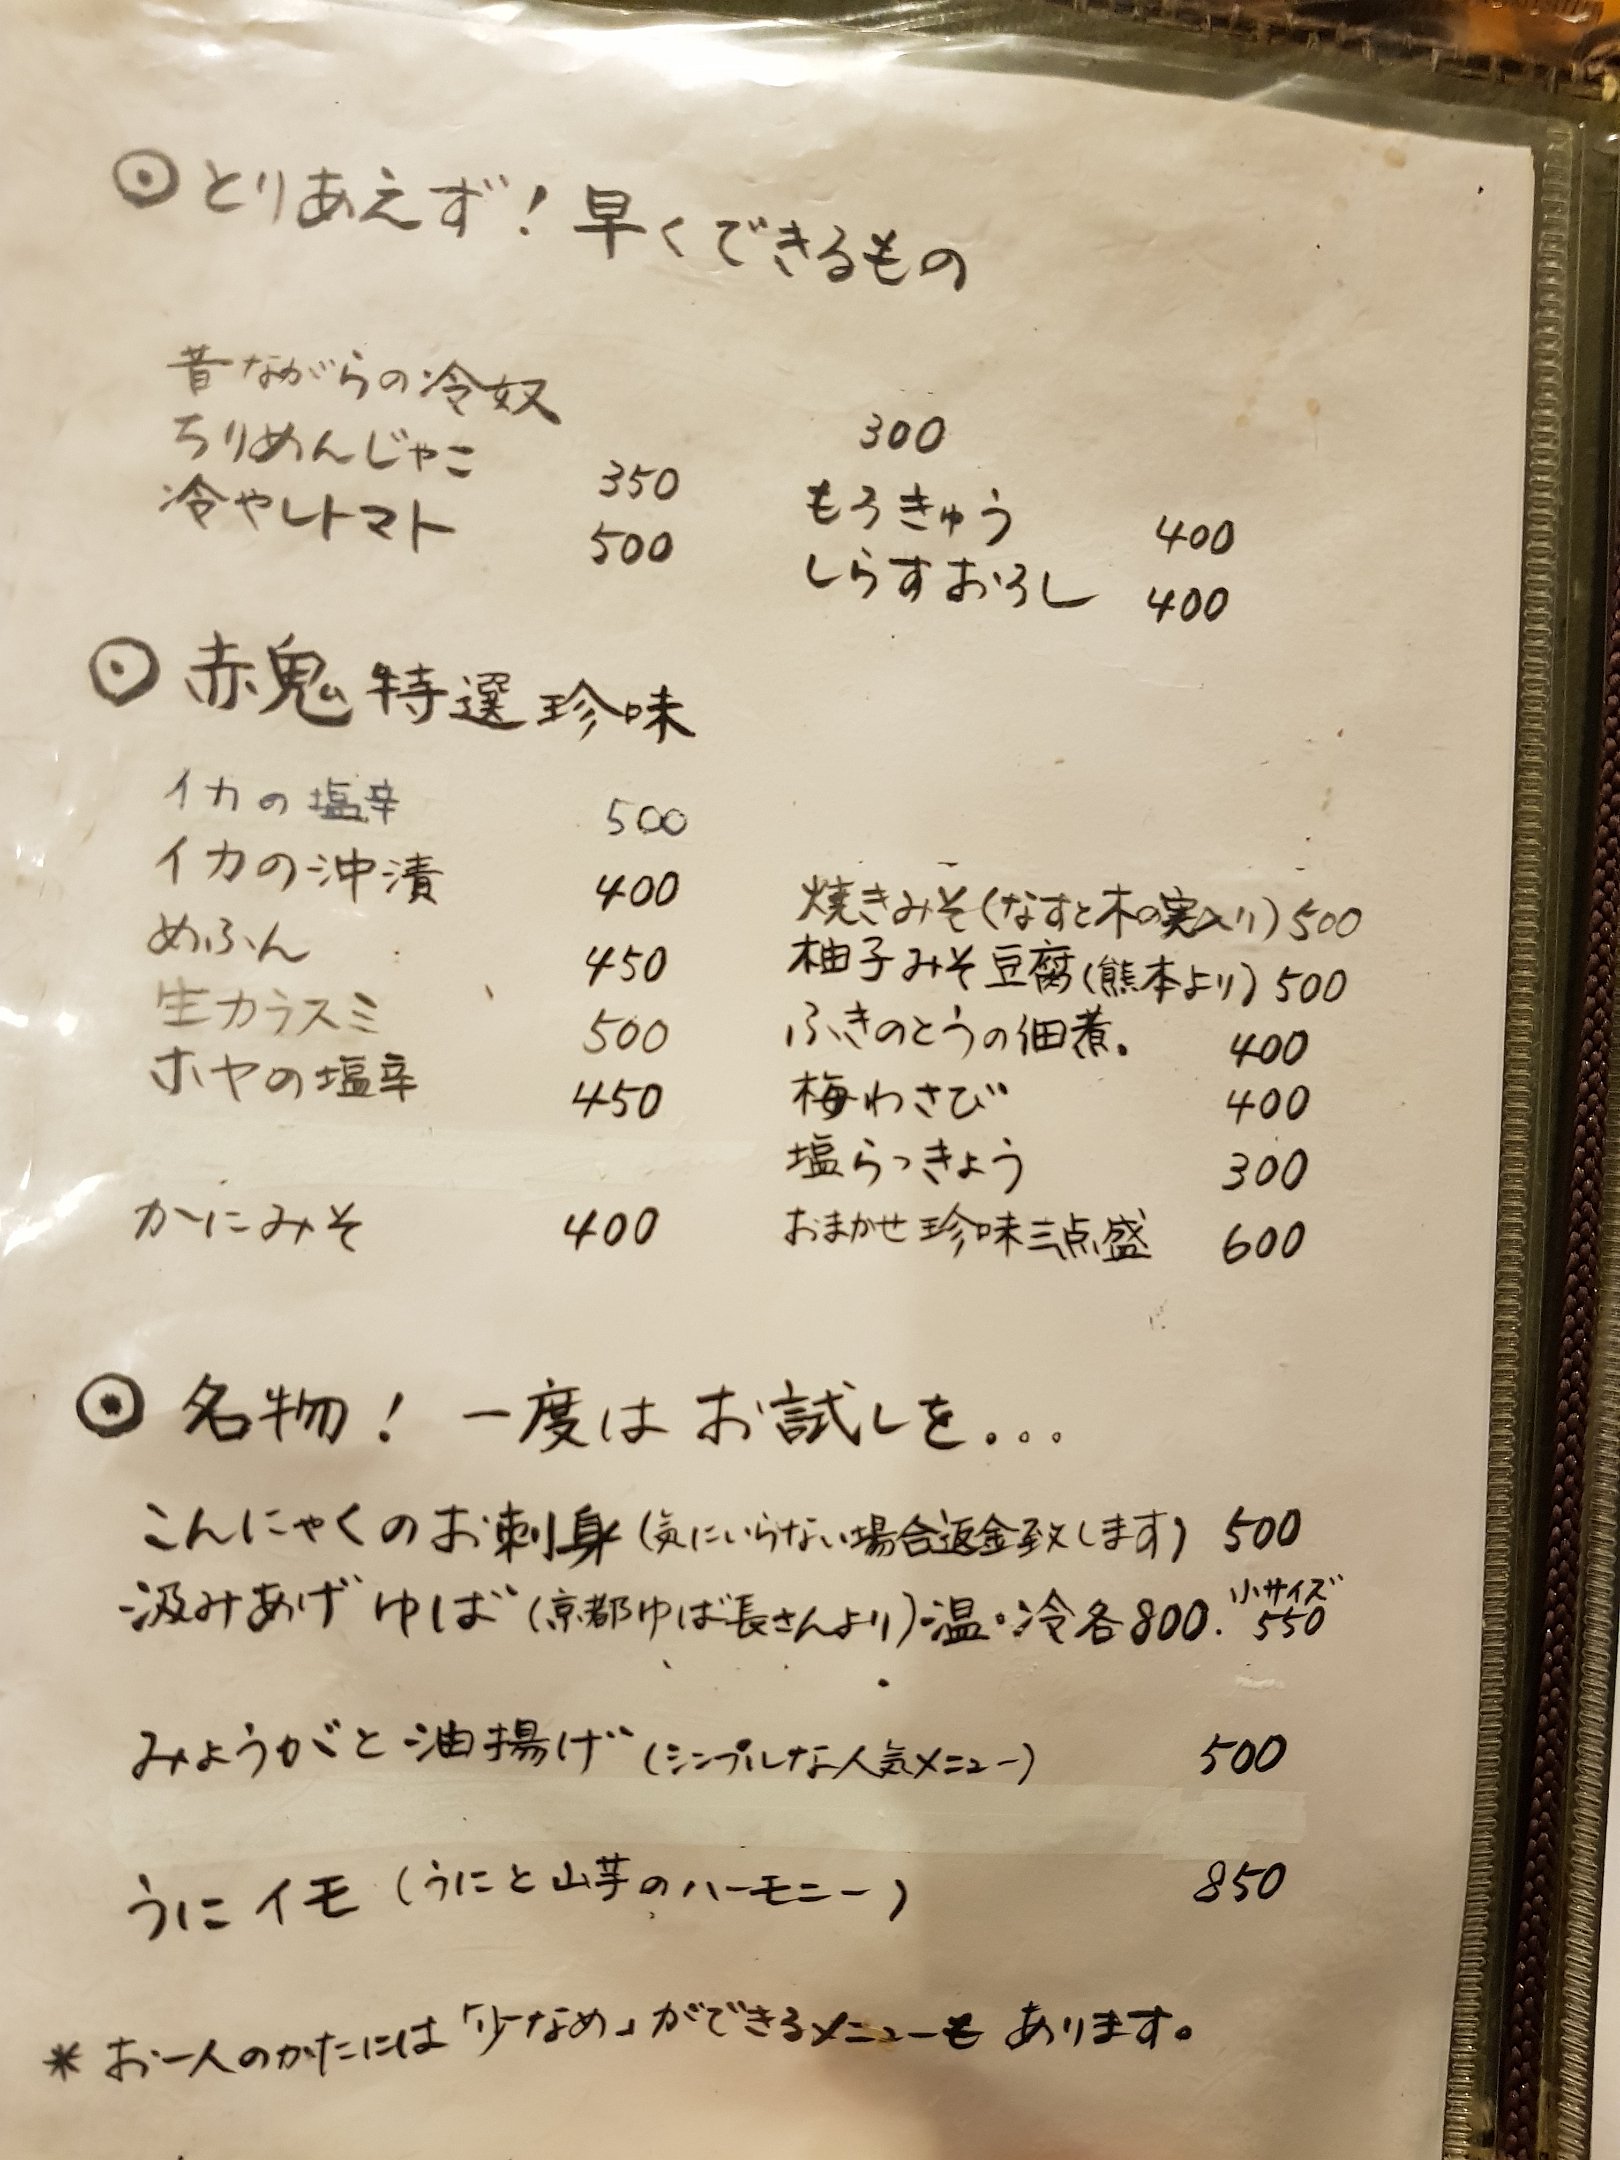 ◉とりあえず！早くできるもの
昔ながらの冷奴 300
ちりめんじゃこ 350 もろきゅう 400
冷やしトマト 500 しらすおろし 400
◉赤鬼特選珍味
イカの塩辛 500
イカの沖漬 400 焼きみそ(なすと木の実入り) 500
めふん 450 柚子みそ豆腐(熊本より) 500
生カラスミ 500 ふきのとうの佃煮。 400
ホヤの塩辛 450 梅わさび 400
塩らっきょう 300
かにみそ 400 おまかせ珍味三点盛 600
◉名物！一度はお試しを...
こんにゃくのお刺身(気にいらない場合返金致します) 500
汲みあげゆば(京都ゆば長さんより)温・冷各800. 小サイズ 550
みょうがと油揚げ(シンプルな人気メニュー) 500
うにイモ(うにと山芋のハーモニー) 850
*お一人のかたには「少なめ」ができるメニューもあります。